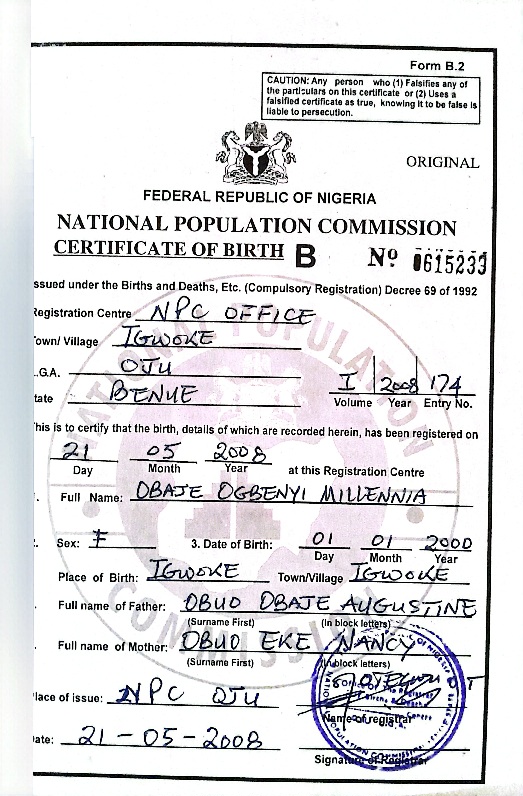 Form B.2
CAUTION: Any person who (1) Falsifies any of
the particulars on this certificate or (2) Uses a
falsified certificate as true, knowing it to be false is
liable to persecution.
ORIGINAL
FEDERAL REPUBLIC OF NIGERIA
NATIONAL POPULATION COMMISSION
CERTIFICATE OF BIRTH B Nº 0615233
ssued under the Births and Deaths, Etc. (Compulsory Registration) Decree 69 of 1992
Registration Centre NPC OFFICE
Town/ Village IGWOKE
.G.A. OJU
tate BENUE I 2008 174
Volume Year Entry No.
his is to certify that the birth, details of which are recorded herein, has been registered on
21 05 2008
Day Month Year at this Registration Centre
Full Name: OBAJE OGBENYI MILLENNIA
Sex: F 3. Date of Birth: 01 01 2000
Day Month Year
Place of Birth: IGWOKE Town/Village IGWOKE
Full name of Father: OBUO OBAJE AUGUSTINE
(Surname First) (In block letters)
Full name of Mother: OBUO EKE NANCY
(Surname First) (In block letters)
lace of issue: NPC OJU
Name of registrar
ate: 21-05-2008
Signature of Registrar
NATIONAL POPULATION
COMMISSION